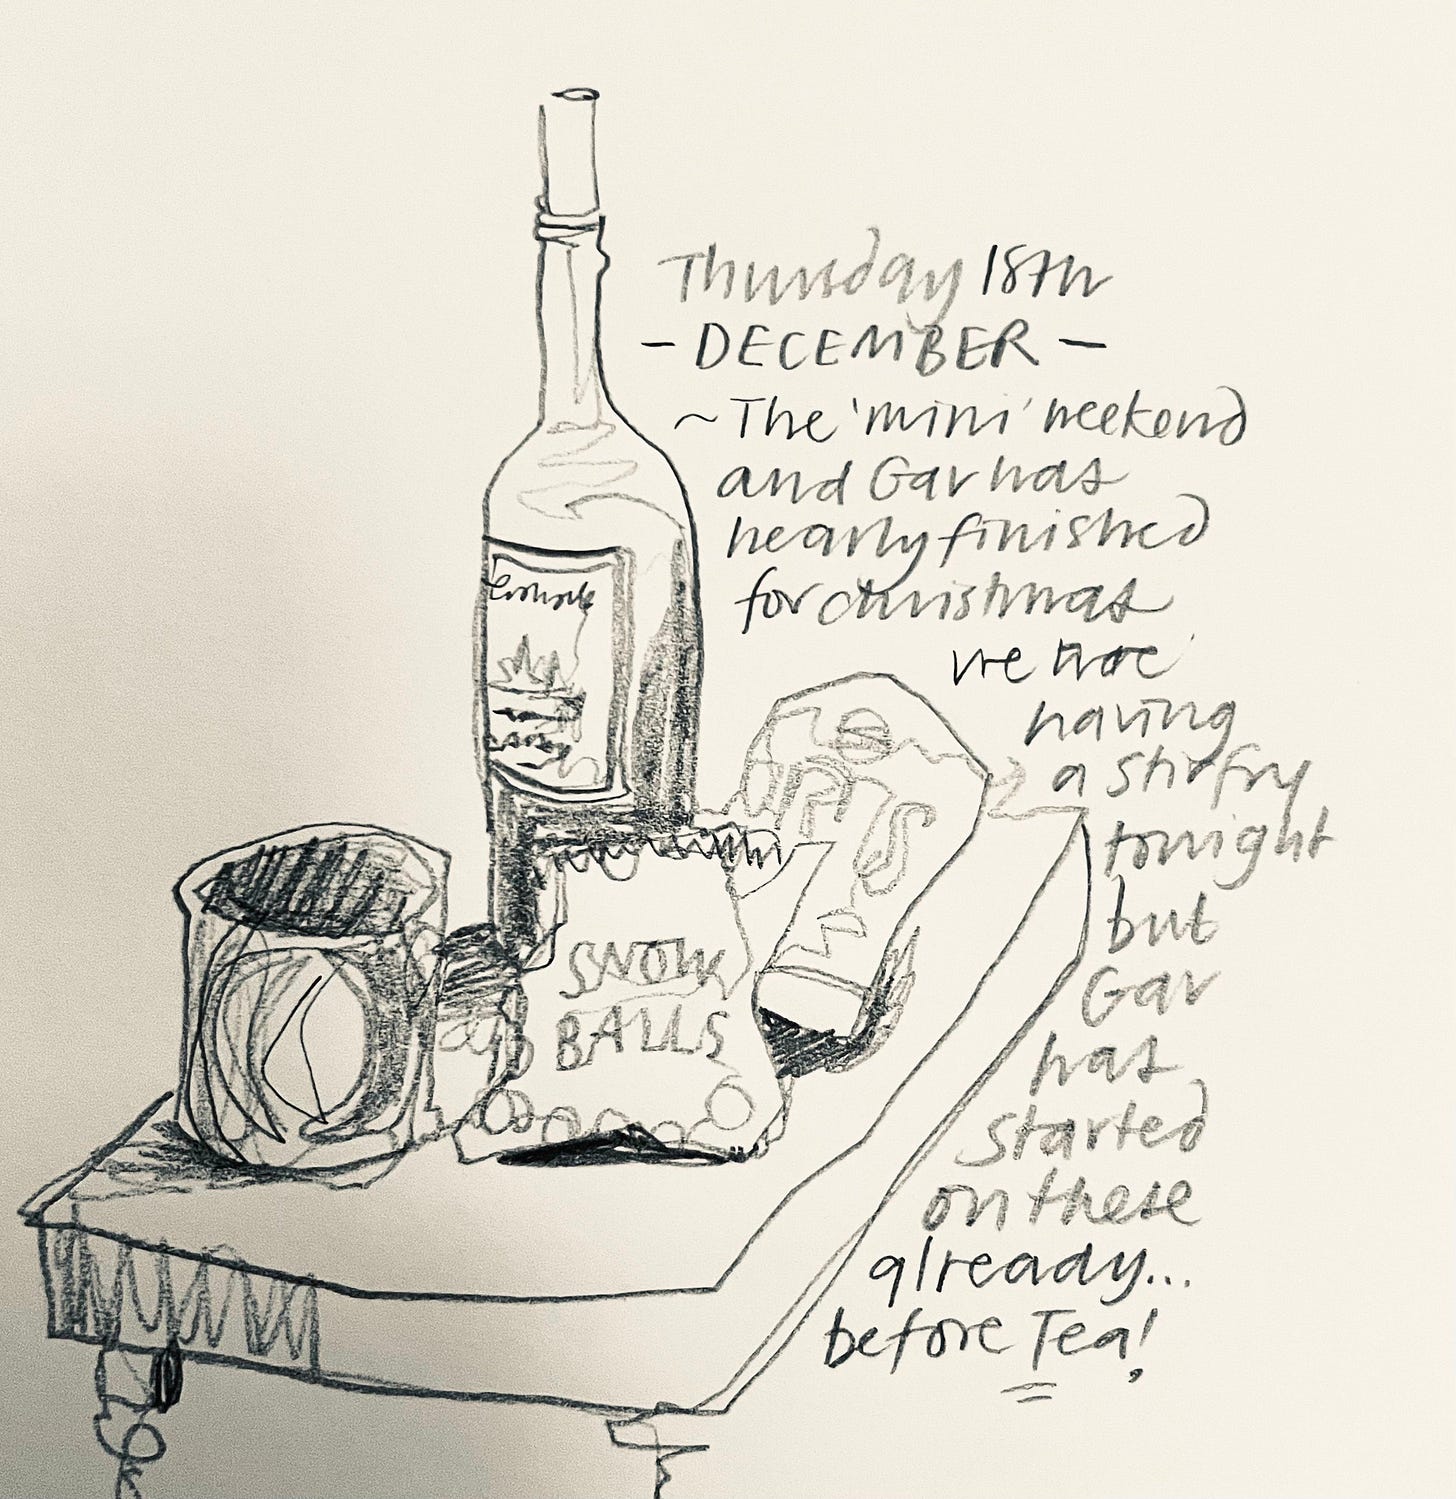 Thursday 18th
- DECEMBER -
~ The 'mini' weekend
and Gav has
nearly finished
for christmas
we are
having
a stirfry
tonight
but
Gav
has
started
on these
already...
before Tea!
SNOW
BALLS